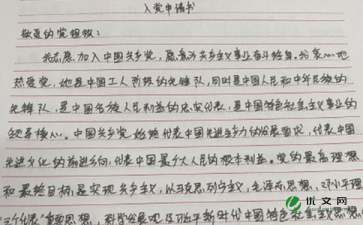 入党申请书
敬爱的党组织:
我志愿加入中国共产党,愿意为共产主义事业奋斗终身。我衷心地
热爱党,她是中国工人阶级的先锋队,同时是中国人民和中华民族的
先锋队,是中国各族人民利益的忠实代表,是中国特色社会主义事业的
领导核心。中国共产党始终代表中国先进生产力的发展要求,代表中国
先进文化的前进方向,代表中国最广大人民的根本利益。党的最高理想
和最终目标是实现共产主义,以马克思列宁主义、毛泽东思想、邓小平理
"三个代表"重要思想、科学发展观及习近平新时代中国特色社会主义思想
优文网